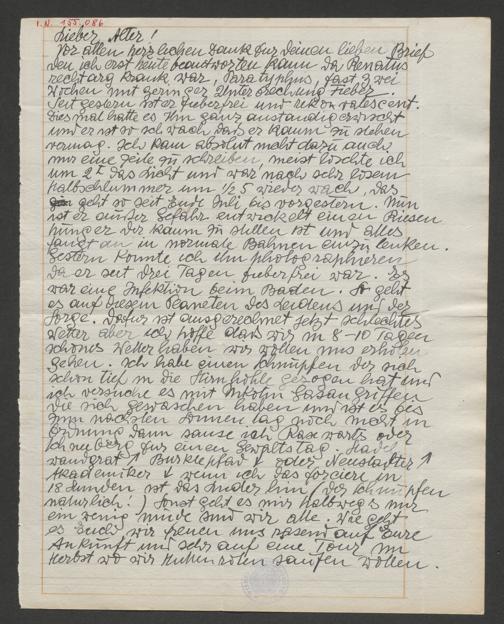 I.N. 155.086
Lieber Alter!
Vor allem herzlichen Dank für Deinen lieben Brief
den ich erst heute beantworten kann da Renatus
recht arg krank war, Paratyphus, fast zwei
Wochen mit geringer Unterbrechung Fieber.
Seit gestern ist er fieberfrei und rekonvaleszent.
Diesmal hatte es ihn ganz anständig erwischt
und er ist so schwach, dass er kaum zu stehen
vermag. Ich kam absolut nicht dazu auch
nur eine Zeile zu schreiben, meist löschte ich
um 2h das Licht und war nach schlafosem
Halbschlummer um 1/2 5 wieder wach, das
geht so seit Ende Juli bis vorgestern. Nun
ist er außer Gefahr entwickelt einen Riesen
hunger der kaum zu stillen ist und alles
fängt an in normale Bahnen einzulenken.
Gestern konnte ich ihn photographieren
da er seit drei Tagen fieberfrei war. Es
war eine Infektion beim Baden. So geht
es auf diesem Planeten des Leidens und der
Sorge. Dafür ist ausgerechnet jetzt schlechtes
Wetter aber ich hoffe dass wir in 8-10 Tagen
schönes Wetter haben wir wollen uns erholen
gehen. Ich habe einen Schnupfen der sich
schon tief in die Hirnhöhle gezogen hat und
ich versuche es mit Gasangriffen
die sich gewaschen haben und ist es bis
zum nächsten Sonnentag noch nicht in
Ordnung dann sause ich Raxwärts oder
Schneeberg für einen Gewaltstag: Stadel
wandgrat ↑ Bürklepfad ↓ oder Neustädter ↑
Akademiker ↓ wenn ich das forciere in
18 Stunden ist das Luder hin (der Schnupfen
natürlich!) Sonst geht es mir halbwegs nur
ein wenig müde sind wir alle. Wie geht
es Euch, wir freuen uns rasend auf Eure
Ankunft und sehr auf eine Tour im
Herbst wo wir Hüttenroten saufen wollen.